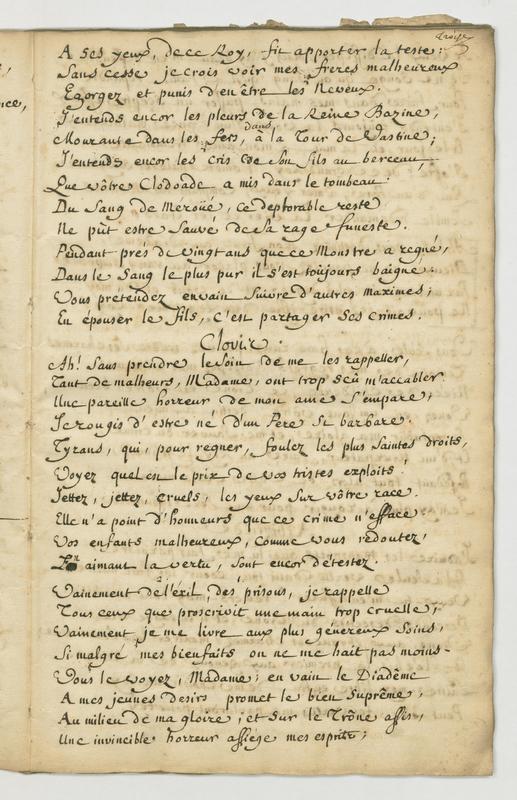 Troise
A ses yeux, de ce Roy, fit apporter la teste:
Sans cesse je crois voir mes freres malheureux
Egorgez et punis d'en être les Neveux.
J'entends encor les pleurs de la Reine Bazine,
Mourante dans les fers, dans la Tour de Vastine;
J'entends encor les cris de son fils au berceau,
Que vôtre Clodoade a mis dans le tombeau:
Du sang de Meroüé, ce deplorable reste
Ne pût estre sauvé de sa rage funeste.
Pendant prés de vingt ans que ce Monstre a regné,
Dans le sang le plus pur il s'est toujours baigné.
Vous prétendez envain suivre d'autres maximes;
En épouser le fils, c'est partager ses crimes.
Clovis.
Ah! sans prendre le soin de me les rappeller,
Tant de malheurs, Madame, ont trop sçû m'accabler
Une pareille horreur de mon ame s'empare;
Je rougis d'estre né d'un Pere si barbare.
Tyrans, qui, pour regner, foulez les plus saintes droits,
Voyez quel est le prix de vos tristes exploits!
Jettez, jettez, cruels, les yeux sur vôtre race.
Elle n'a point d'honneurs que ce crime n'efface
Vos enfants malheureux, comme vous redoutez,
En aimant la vertu, sont encor détestez.
Vainement de l'éxil, des prisons, je rappelle
Tous ceux que proscrivit une main trop cruelle;
Vainement je me livre aux plus généreux soins,
Si malgré mes bienfaits on ne me hait pas moins.
Vous le voyez, Madame; en vain le Diadême
A mes jeunes desirs promet le bien suprême,
Au milieu de ma gloire, et sur le Trône assis,
Une invincible horreur assiege mes esprits;